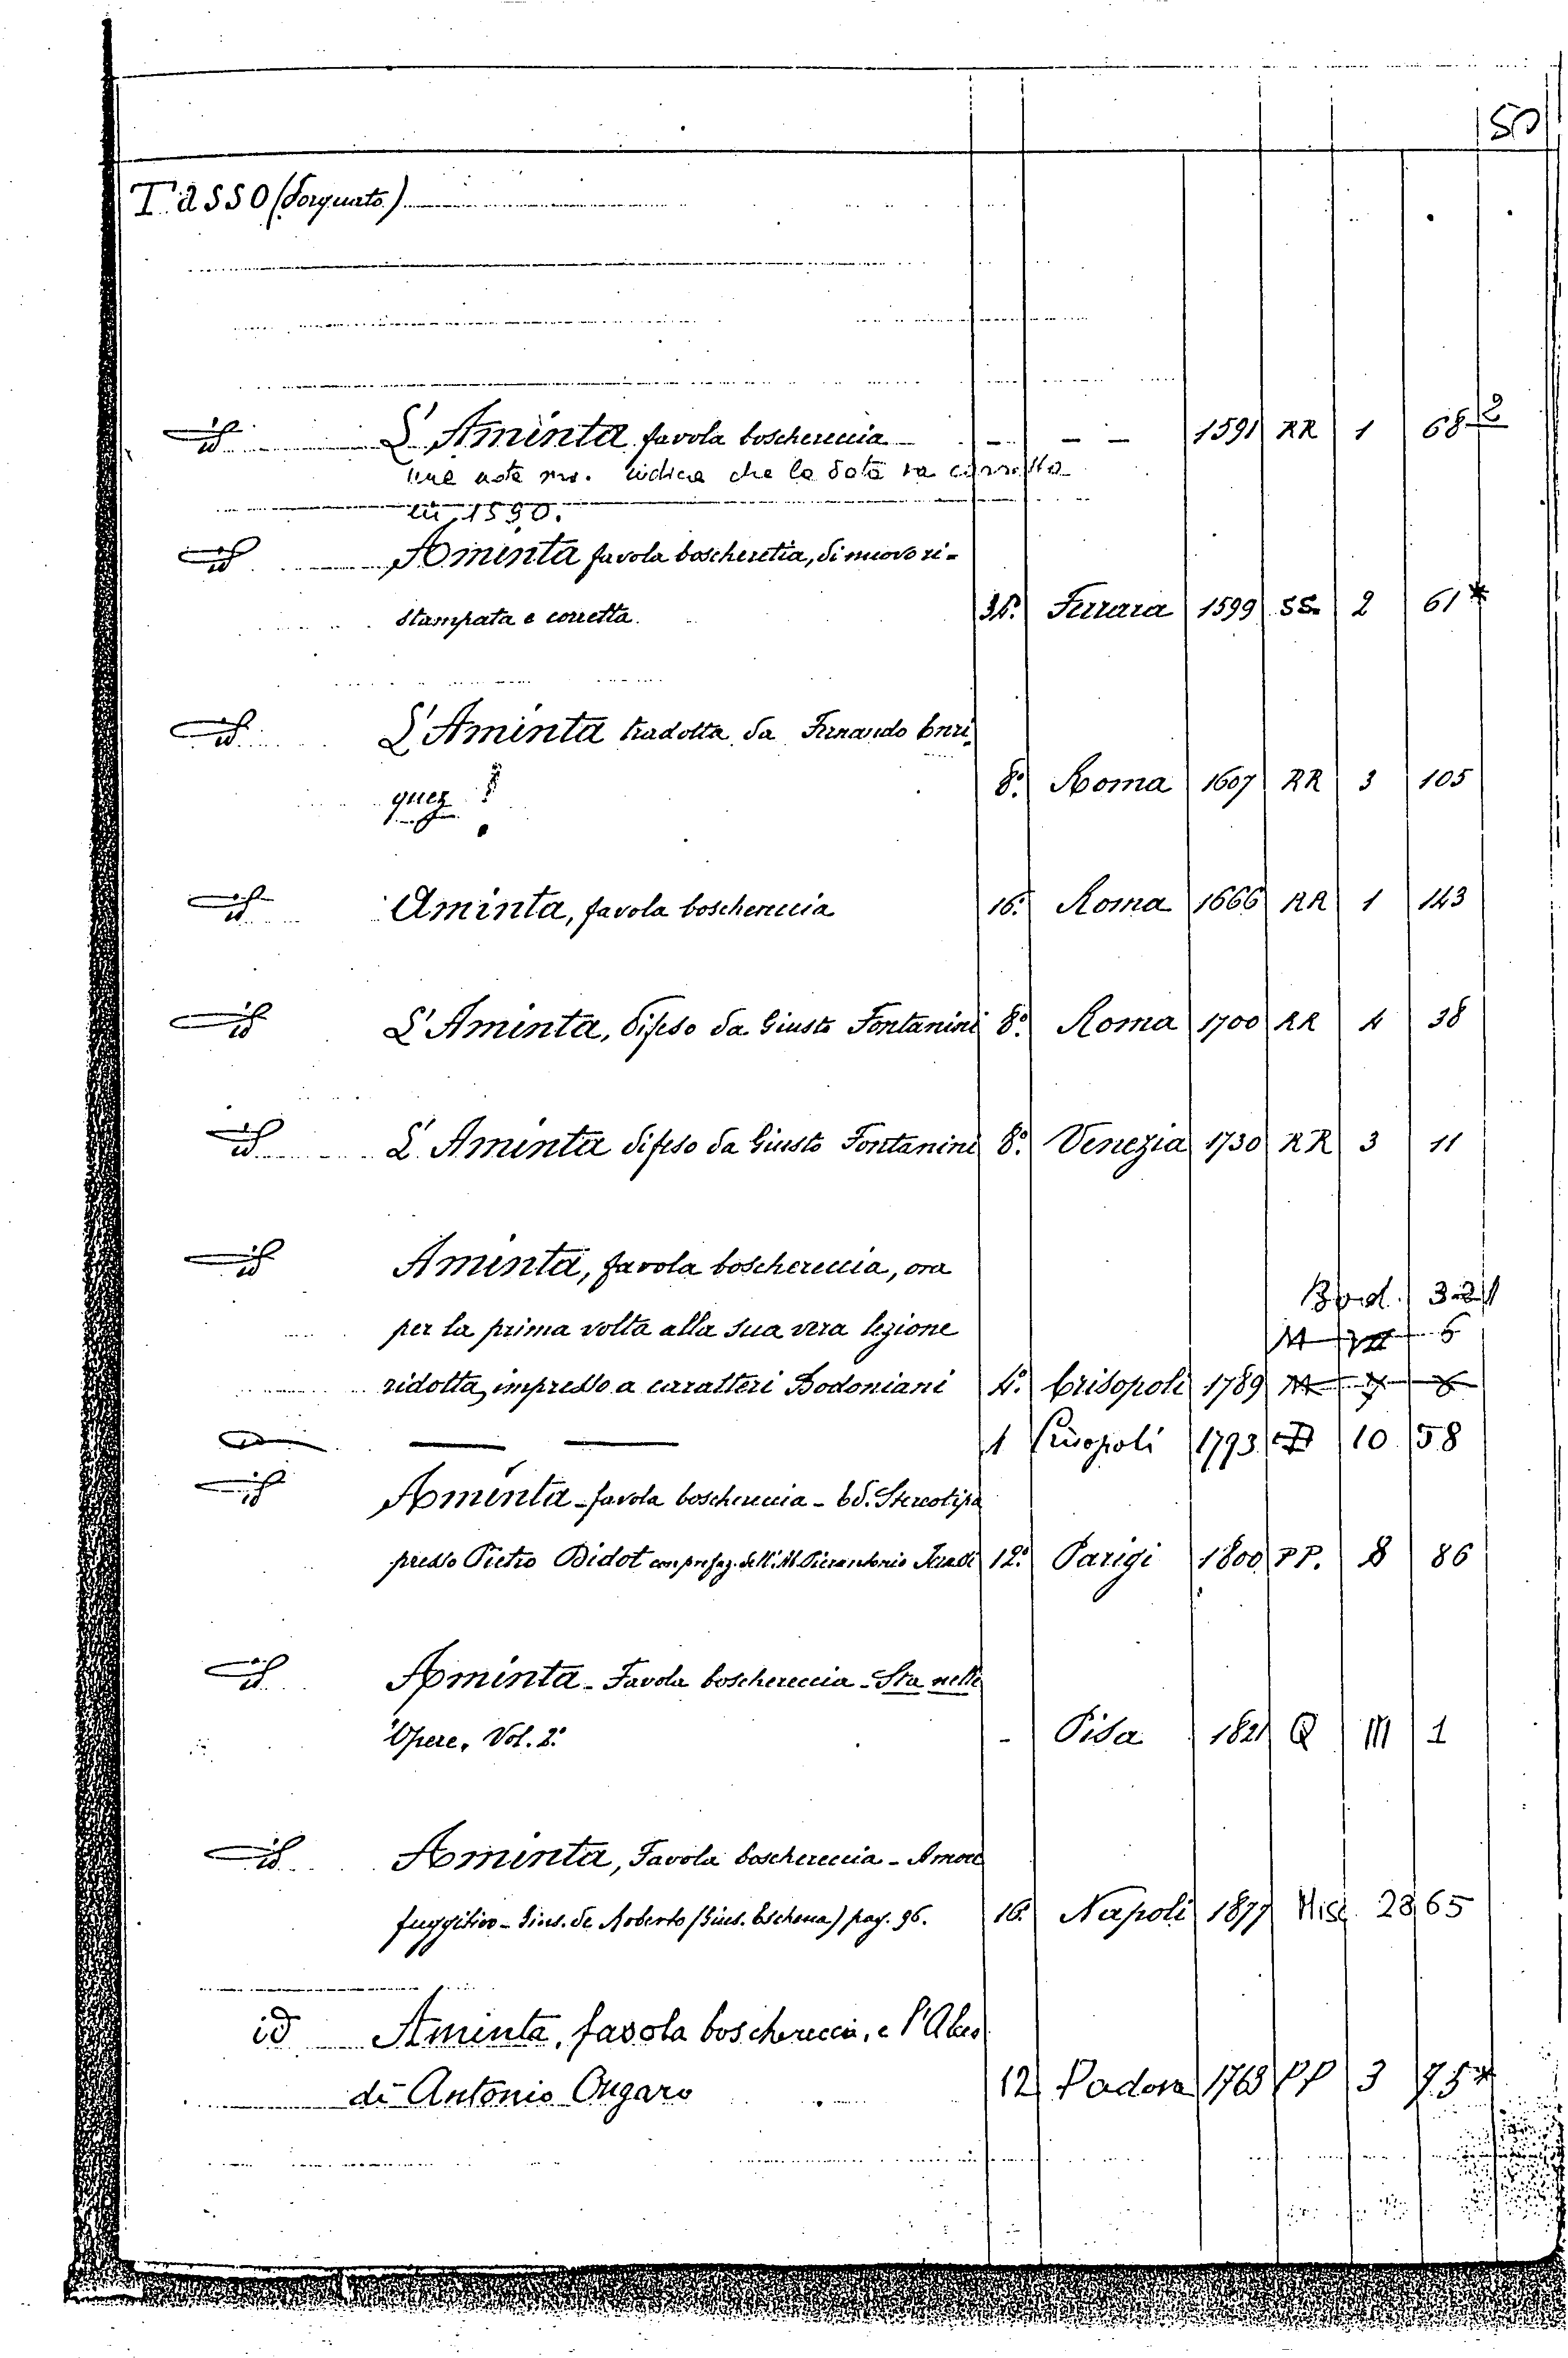 50
Tasso (Torquato)
id L'Aminta favola boschereccia - - - 1591 RR 1 68 2
una nota ms. indica che la data va corretta
in 1590.
id Aminta favola boscheretia, di nuovo ri-
stampata e corretta. Ferrara 1599 SS. 2 61*
id L'Aminta tradotta da Fernando Enri-
quez 8.° Roma 1607 RR 3 105
id Aminta, favola boschereccia 16.° Roma 1666 RR 1 143
id L'Aminta, difeso da Giusto Fontanini 8.° Roma 1700 RR 4 38
id L'Aminta difeso da Giusto Fontanini 8.° Venezia 1730 RR 3 11
id Aminta, favola boschereccia, ora
Bod. 321
per la prima volta alla sua vera lezione M 6
ridotta, impresso a caratteri Bodoniani 4.° Crisopoli 1789 M
id — — 1 Crisopoli 1793 10 58
id Aminta - favola boschereccia - Ed. Stereotipa
presso Pietro Didot con prefaz. dell'Ab. Pierantonio Serassi 12.° Parigi 1800 PP. 8 86
id Aminta - Favola boschereccia - Sta nelle
Opere. Vol. 2.° - Pisa 1821 Q III 1
id Aminta, Favola boschereccia - Amore
fuggitivo - Gius. de Roberto (Gius. Eschena) pag. 96. 16.° Napoli 1877 Misc. 28 65
id Aminta, favola boschereccia, e l'Alceo
di Antonio Ongaro 12 Padova 1763 PP 3 75*